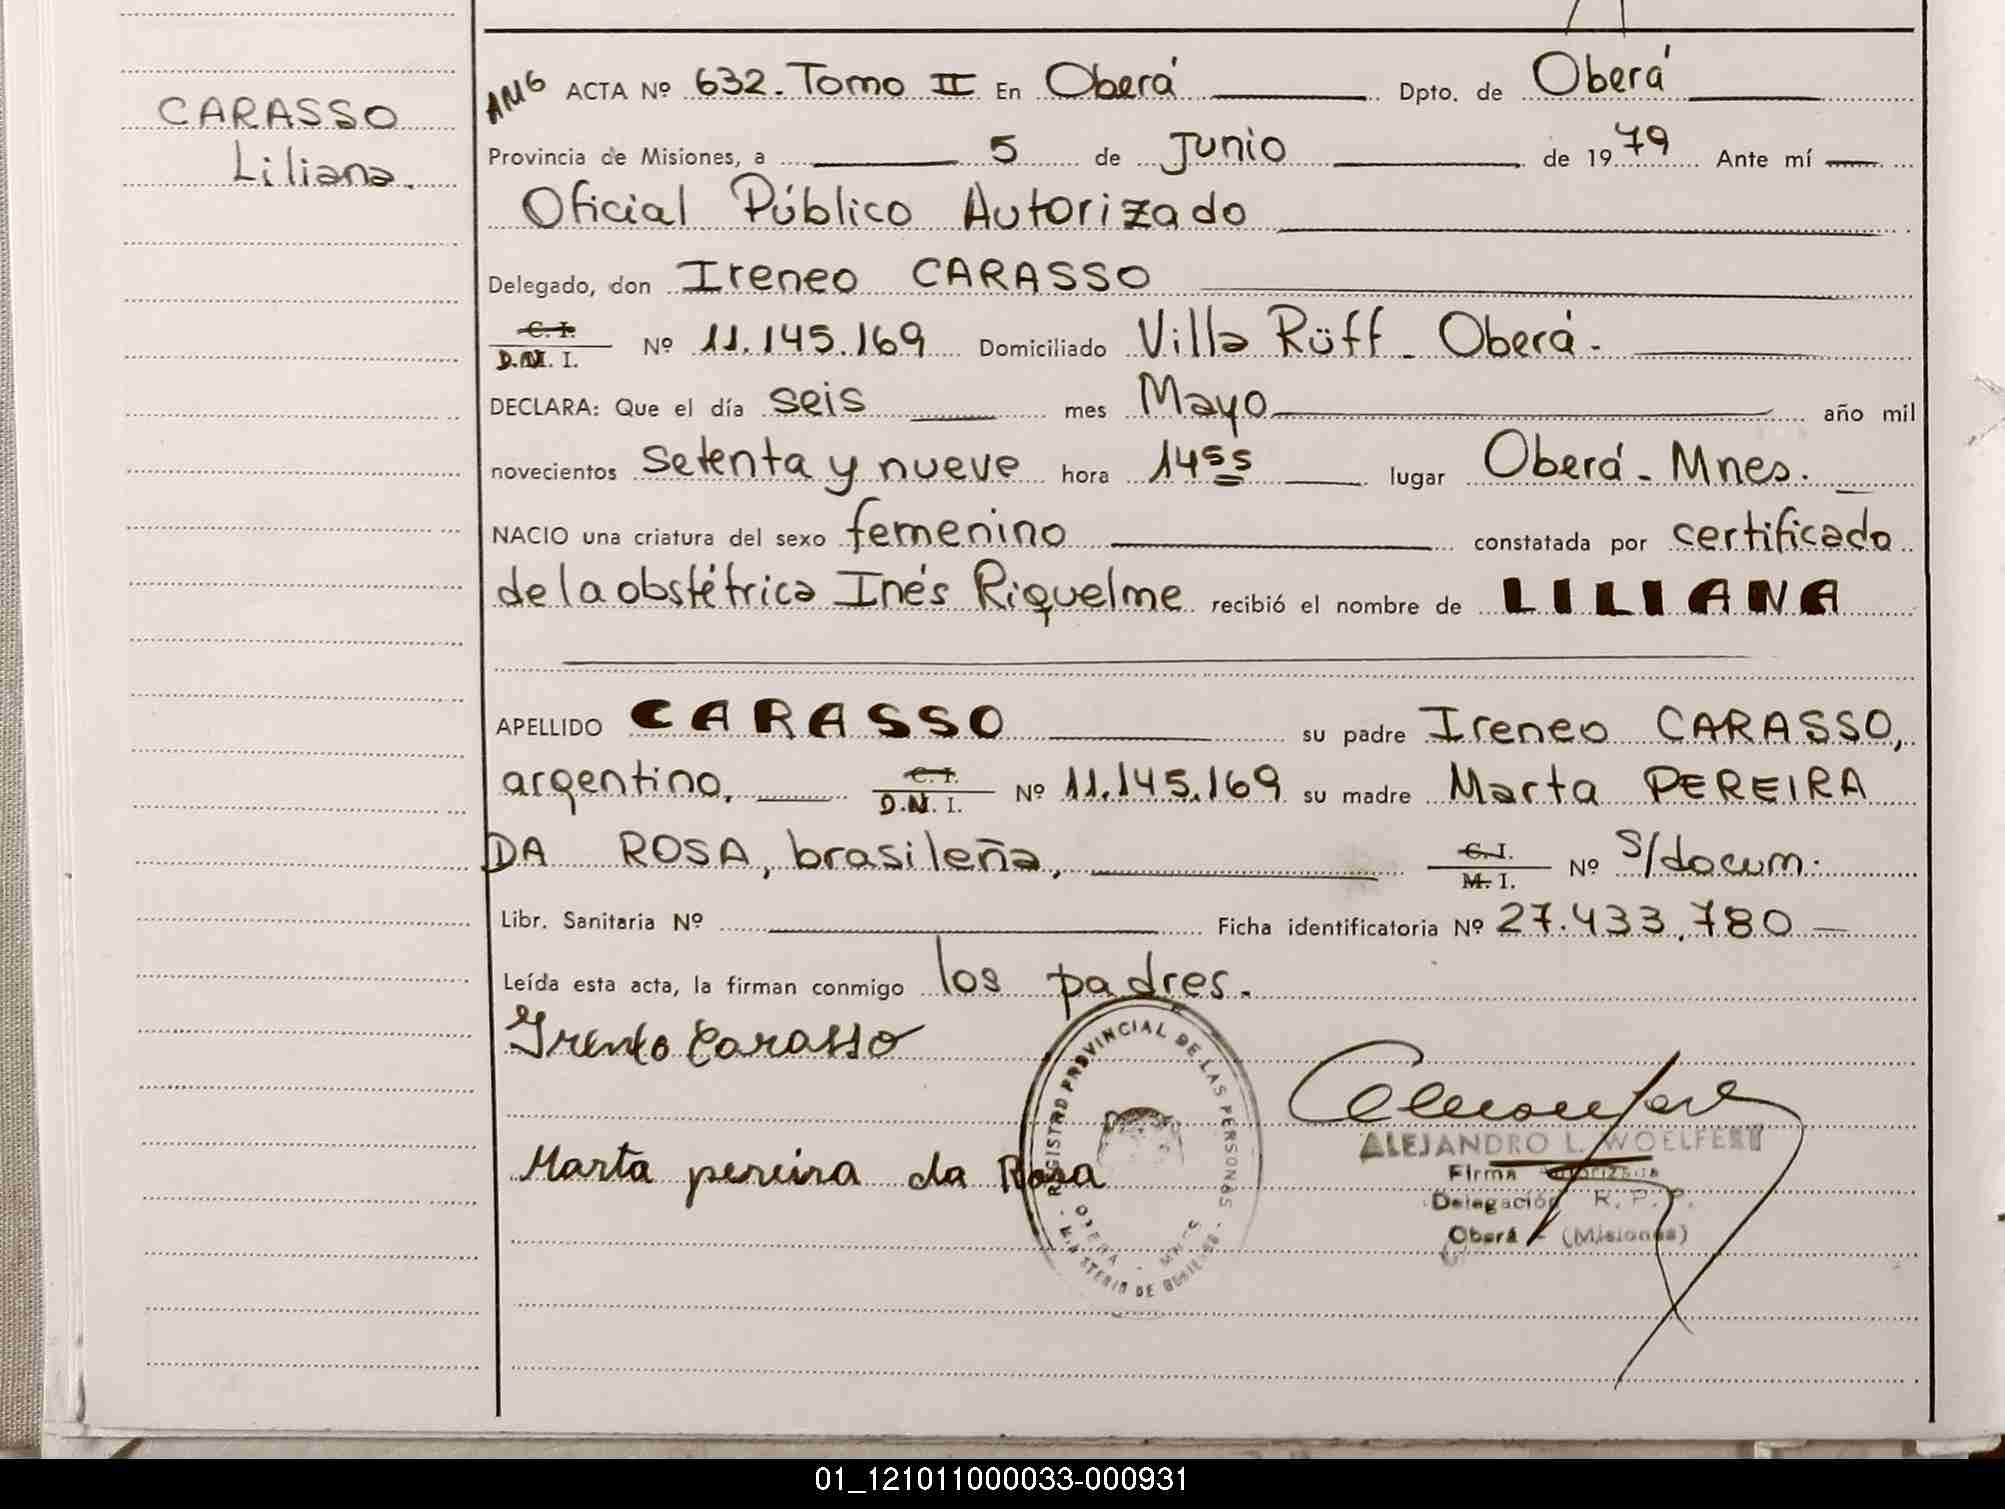 CARASSO
Liliana.
AMG ACTA Nº 632. Tomo II En Oberá Dpto. de Oberá
Provincia de Misiones, a 5 de Junio de 1979 Ante mí
Oficial Público Autorizado
Delegado, don Ireneo CARASSO
C. I.
D.N. I. Nº 11.145.169 Domiciliado Villa Rüff - Oberá.
DECLARA: Que el día seis mes Mayo año mil
novecientos setenta y nueve hora 14 55 lugar Oberá - Mnes.
NACIO una criatura del sexo femenino constatada por certificado
de la obstétrica Inés Riquelme recibió el nombre de LILIANA
APELLIDO CARASSO su padre Ireneo CARASSO,
argentino, C. I. D.N. I. Nº 11.145.169 su madre Marta PEREIRA
DA ROSA, brasileña, C. I. M. I. Nº S/docum.
Libr. Sanitaria Nº Ficha identificatoria Nº 27.433.780
Leída esta acta, la firman conmigo los padres.
Ireneo Carasso
Marta pereira da Rosa
- REGISTRO PROVINCIAL DE LAS PERSONAS -
OBERA - MNES
MINISTERIO DE GOBIERNO
ALEJANDRO L. WOELFERT
Firma Autorizada
Delegación R. P. P.
Oberá - (Misiones)
01_121011000033-000931